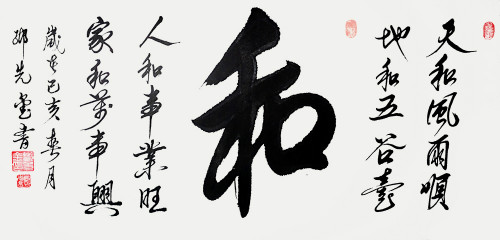 天和風雨順
地和五谷豊
和
人和事業旺
家和萬事興
歲在己亥春月
邓先堂書